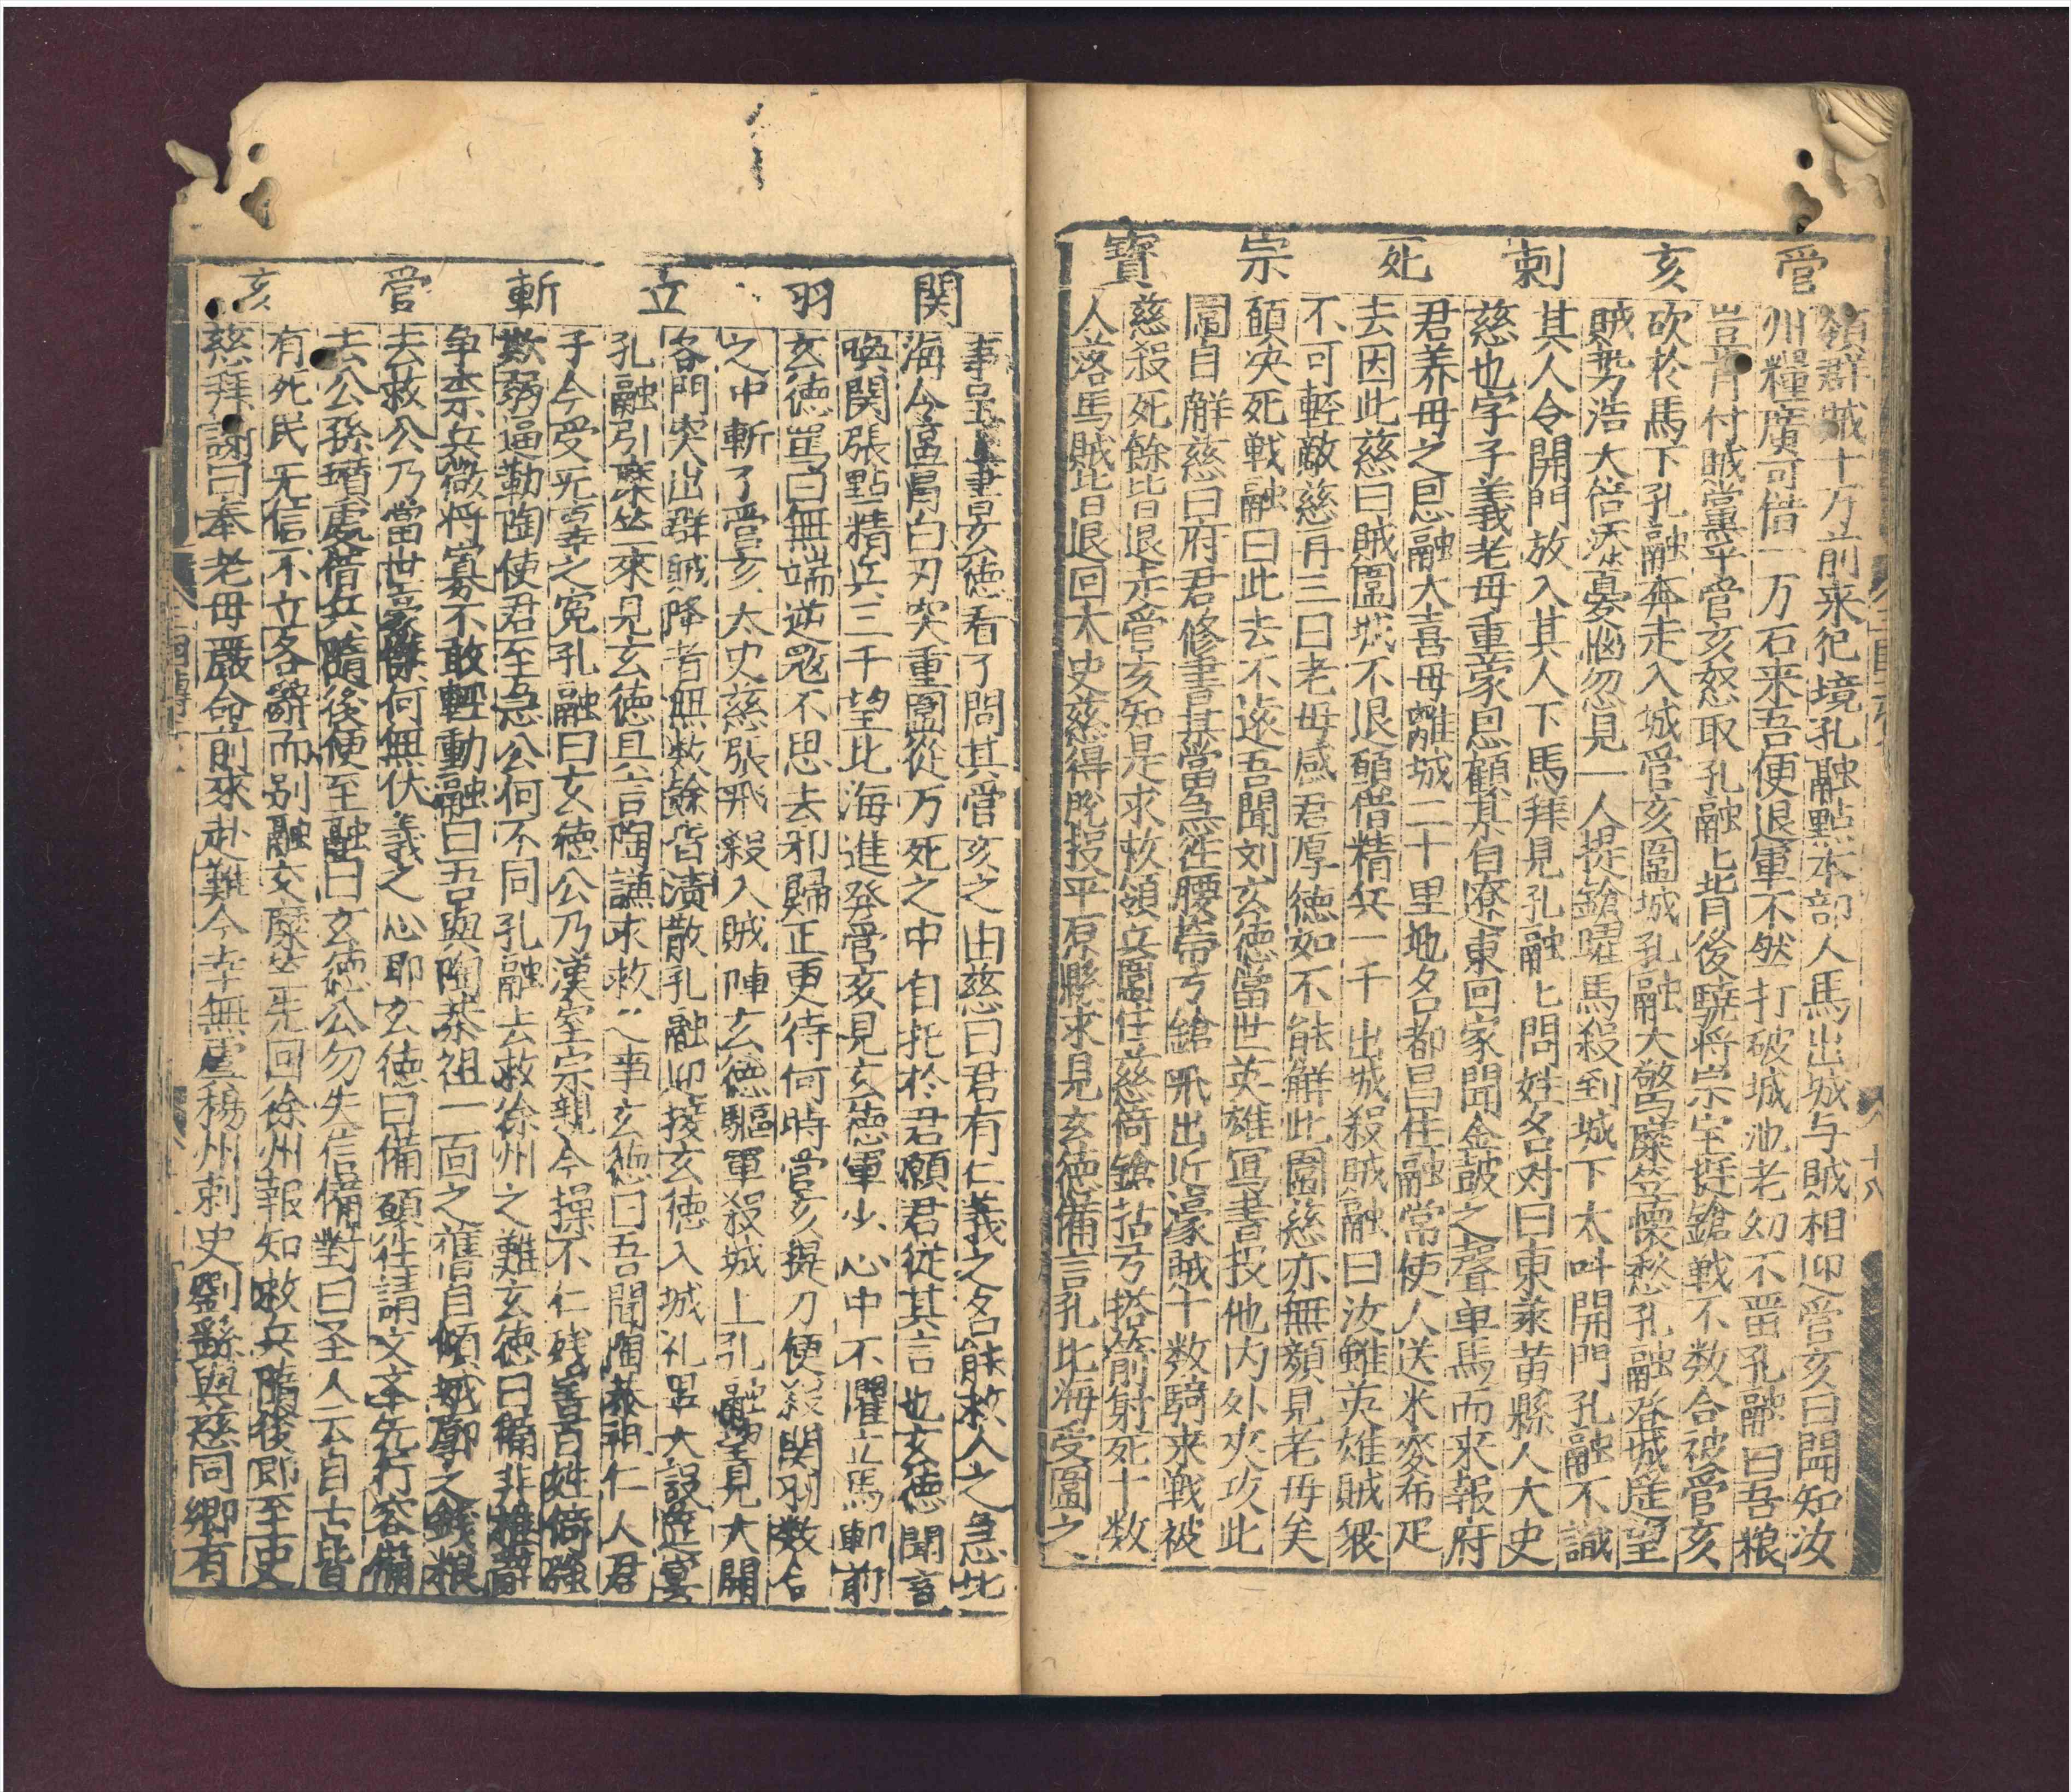 管亥刺死宗寶
領群賊十万前来犯境孔融點本部人馬出城与賊相迎管亥曰聞知汝
州糧廣可借一万石来吾便退軍不然打破城池老幼不畱孔融曰吾粮
豈肯付賊黨乎管亥怒取孔融匕背後驍将宗宝挺鎗戦不数合被管亥
砍於馬下孔融奔走入城管亥圍城孔融大驚糜竺懐愁孔融登城庭望
賊势浩大倍添憂惱忽見一人提鎗曜馬殺到城下大叫開門孔融不識
其人令開門放入其人下馬拜見孔融匕問姓名对曰東萊黄縣人大史
慈也字子義老母重蒙恩顧某自遼東回家聞金鼓之聲車馬而来報府
君养母之恩融大喜母離城二十里地名都昌住融常使人送米麥布疋
去因此慈曰賊圍城不退願借精兵一千出城殺賊融曰汝雖英雄賊衆
不可輕敵慈再三曰老母感君厚德如不能解此圍慈亦無顔見老母矣
願央死戦融曰此去不遠吾聞刘玄德當世英雄寫書投他内外夾攻此
圍自解慈曰府君修書某當急徃腰帶弓鎗飛出近濠賊十数騎来戦被
慈殺死餘皆退走管亥知是求救領兵圍住慈倚鎗拈弓搭箭射死十数
人落馬賊皆退回太史慈得脱投平原縣求見玄德備言孔北海受圍之
八 十八
関羽立斬管亥
事呈上書与玄徳看了問其管亥之由慈曰君有仁義之名能救人之急北
海今區昌白刃突重圍從万死之中自托於君願君從其言也玄徳聞言
喚関張點精兵三千望北海進發管亥見玄徳軍少心中不懼立馬軍前
玄徳罵曰無端逆寇不思去邪歸正更待何時管亥提刀便殺関羽数合
之中斬了管亥太史慈張飛殺入賊陣玄徳驅軍殺城上孔融望見大開
各門突出群賊降者無数餘皆潰散孔融迎接玄徳入城礼畢大設筵宴
孔融引糜竺來見玄徳且言陶謙求救之事玄徳曰吾聞陶恭祖仁人君
子今受无辜之冤孔融曰玄徳公乃漢室宗親今操不仁残害百姓倚強
欺弱逼勒陶使君至急公何不同孔融去救徐州之難玄徳曰備非推辭
争柰兵微将寡不敢輕動融曰吾與陶恭祖一面之舊自傾城廓之錢粮
去救公乃當世豪傑何無伏義之心耶玄徳曰備願徃請文舉先行容備
去公孫瓚處借兵隨後便至融曰玄徳公勿失信備對曰圣人云自古皆
有死民无信不立各辭而别融交糜竺先回徐州報知救兵隨後即至史
慈拜謝曰奉老母嚴命前來赴難今幸無虞楊州刺史劉繇與慈同鄉有